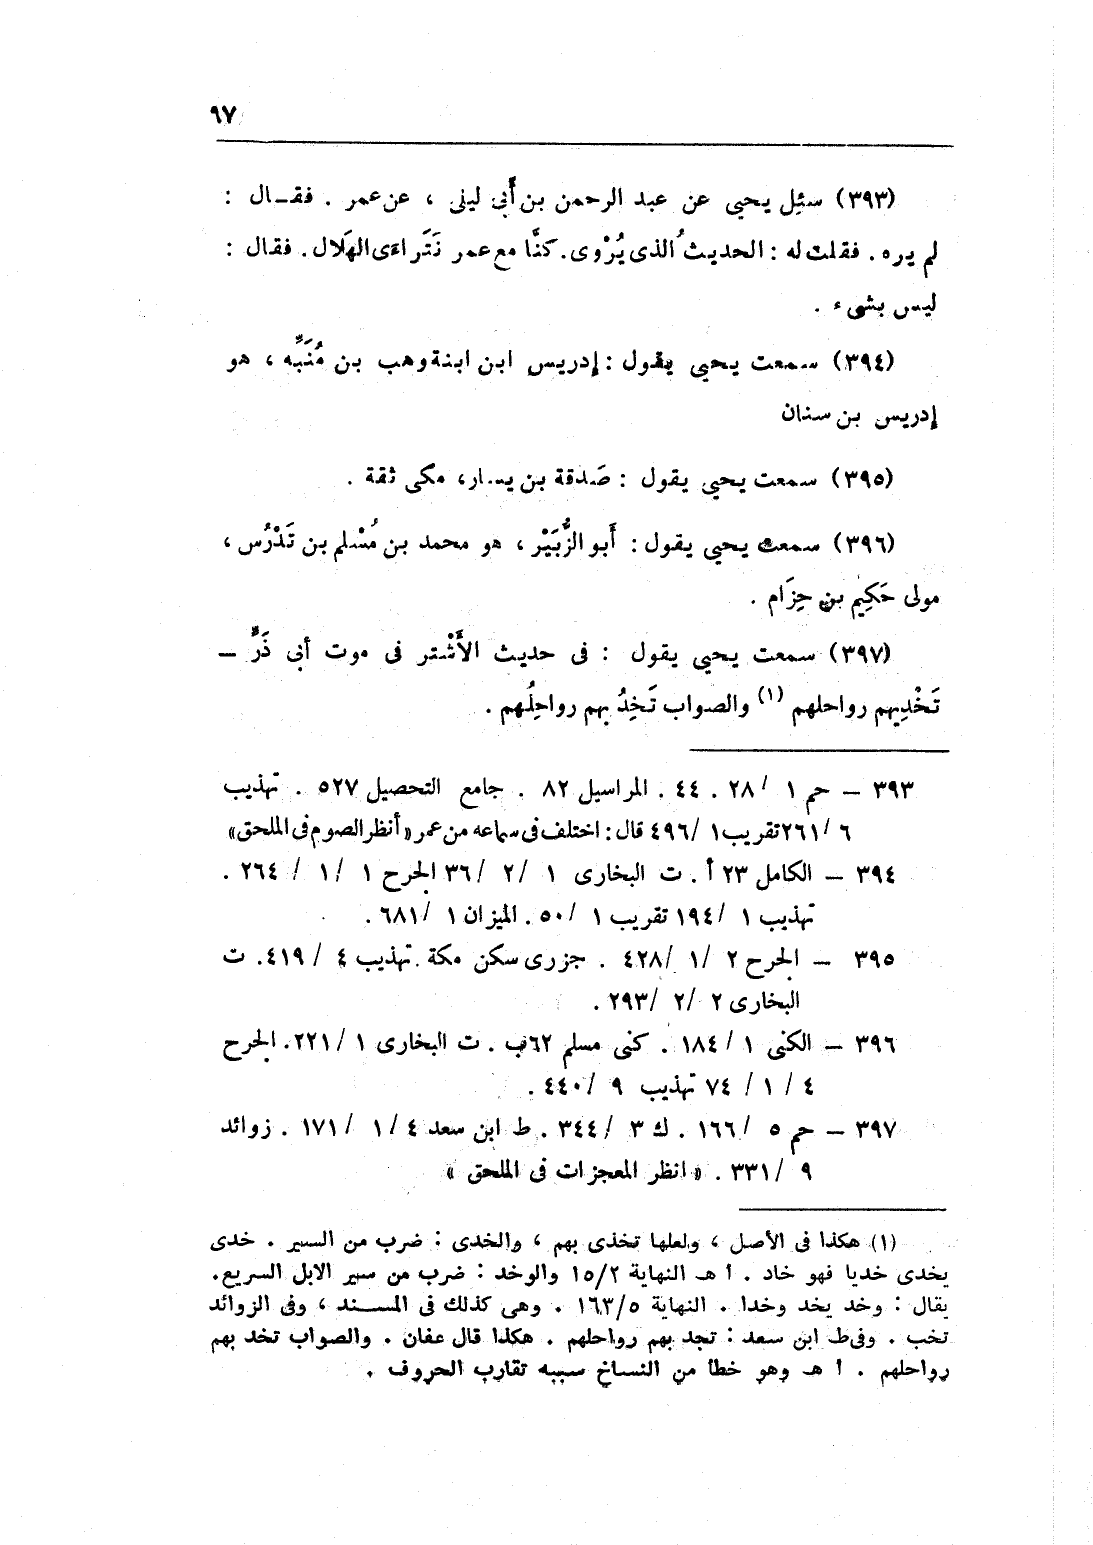 ٩٧
(٣٩٣) سئِل يحيى عن عبد الرحمن بن أَبى ليلى ، عن عمر . فقـال :
لم يره . فقلت له : الحديثُ الذى يُرْوى . كنَّا مع عمر نَتَراءَى الهَلال . فقال :
ليس بشىء .
(٣٩٤) سمعت يحيى يقول : إدريس ابن ابنة وهب بن مُنَبِّه ، هو
إدريس بن سنان
(٣٩٥) سمعت يحيى يقول : صَدقة بن يسار ، مكى ثقة .
(٣٩٦) سمعت يحيى يقول : أَبو الزُّبَيْر ، هو محمد بن مُسْلم بن تَدْرُس ،
مولى حَكِيم بن حِزَام .
(٣٩٧) سمعت يحيى يقول : فى حديث الأَشْتر فى موت أبى ذَرٍّ —
تَخْدِيهم رواحلهم (١) والصواب تَخِدُ بهم رواحِلُهم .
٣٩٣ — حم ١ / ٢٨ . ٤٤ . المراسيل ٨٢ . جامع التحصيل ٥٢٧ . تهذيب
٦ / ٢٦١ تقريب ١ / ٤٩٦ قال : اختلف فى سماعه من عمر « أنظر الصوم فى الملحق »
٣٩٤ — الكامل ٢٣ أ . ت البخارى ١ / ٢ / ٣٦ الجرح ١ / ١ / ٢٦٤ .
تهذيب ١ / ١٩٤ تقريب ١ / ٥٠ . الميزان ١ / ٦٨١ .
٣٩٥ — الجرح ٢ / ١ / ٤٢٨ . جزرى سكن مكة . تهذيب ٤ / ٤١٩ . ت
البخارى ٢ / ٢ / ٢٩٣ .
٣٩٦ — الكنى ١ / ١٨٤ . كنى مسلم ٦٢ب . ت البخارى ١ / ٢٢١ . الجرح
٤ / ١ / ٧٤ تهذيب ٩ / ٤٤٠ .
٣٩٧ — حم ٥ / ١٦٦ . ك ٣ / ٣٤٤ . ط ابن سعد ٤ / ١ / ١٧١ . زوائد
٩ / ٣٣١ . « انظر المعجزات فى الملحق »
(١) هكذا فى الأصل ، ولعلها تخذى بهم ، والخدى : ضرب من السير . خدى
يخدى خديا فهو خاد . أ هـ النهاية ١٥/٢ والوخد : ضرب من سير الابل السريع .
يقال : وخد يخد وخدا . النهاية ١٦٣/٥ . وهى كذلك فى المسـند ، وفى الزوائد
تخب . وفى ط ابن سعد : تجد بهم رواحلهم . هكذا قال عفان . والصواب تخد بهم
رواحلهم . أ هـ وهو خطأ من النساخ سببه تقارب الحروف .